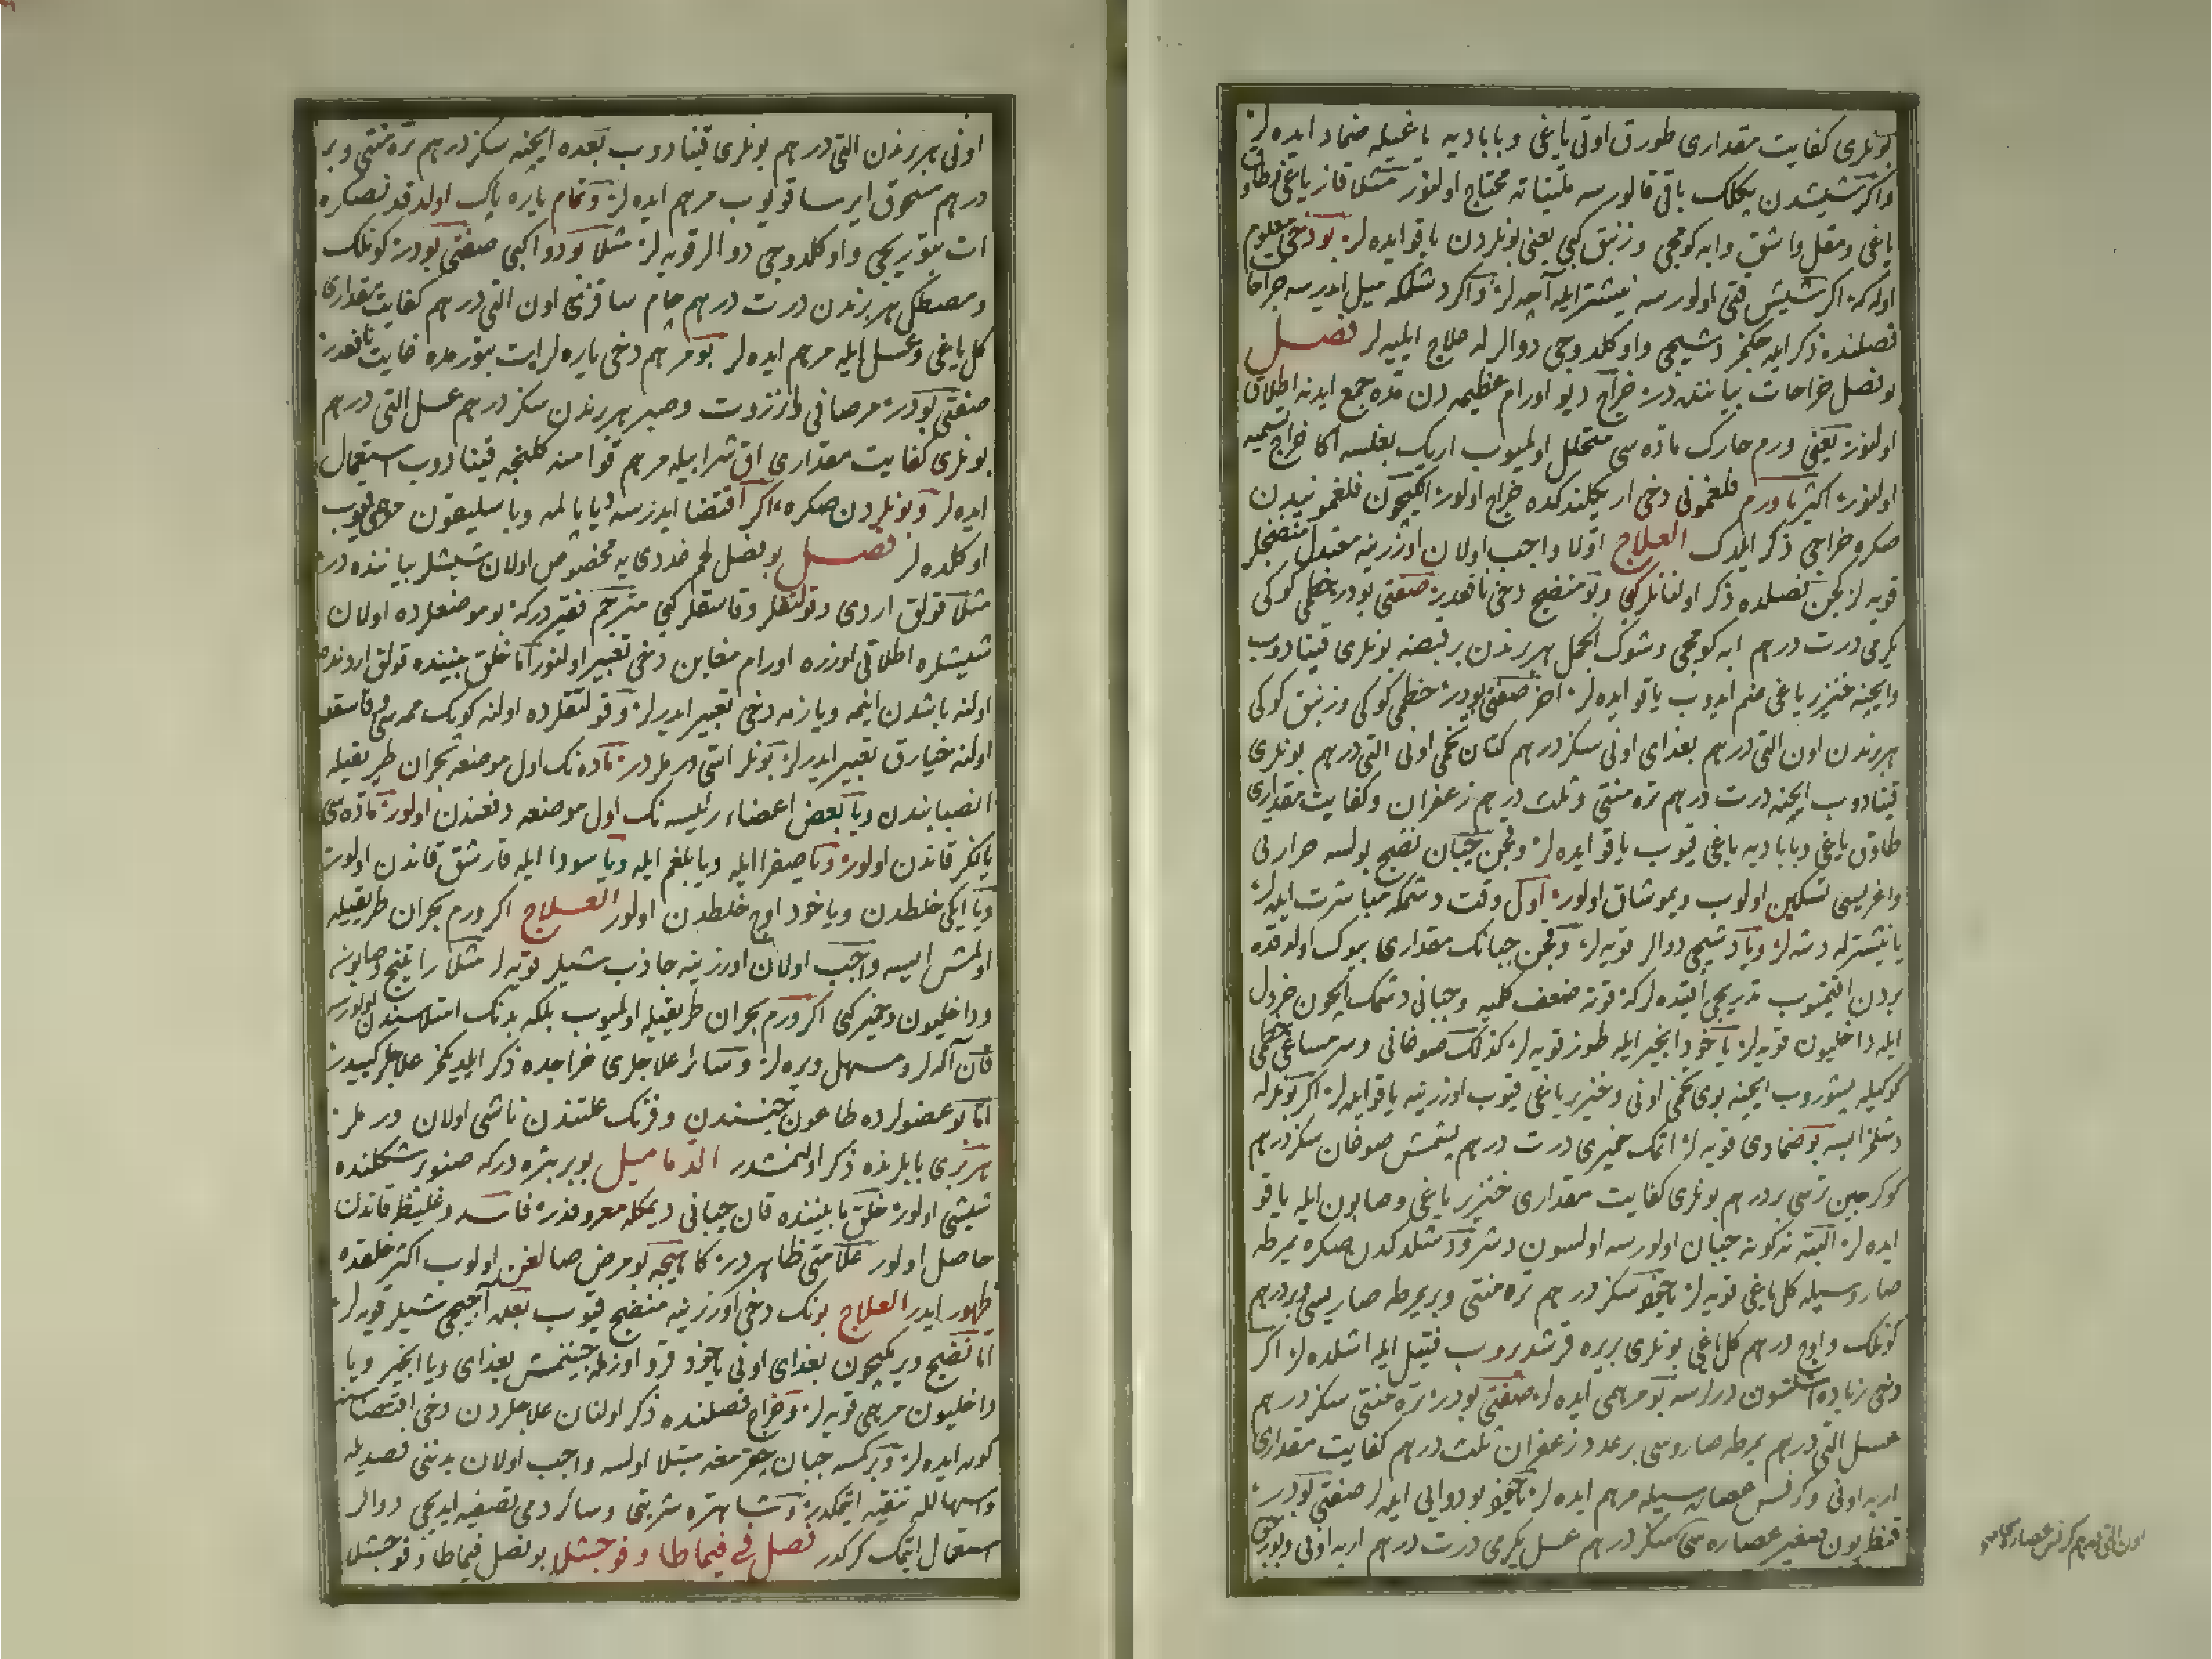 بونلری كفایت مقداری طورق اوتی یاغی و بابادیه یاغیله ضماد ایده لر
واكر شیشدن یكلك باقی قالورسه ملیناته محتاج اولنور مثلا قاز یاغی و طاوق
یاغی ومقل واشق وابه كومجی وزنبق كبی یعنی بونلردن یاقو ایده لر بو دخی معلوم
اوله كه اكر شیش قتی اولورسه نیشتر ایله آچه لر واكر دشلمكه میل ایدرسه جراحا
فصلنده ذكر ایده جكمز دشیجی واوكلدوجی دوالر له علاج ایلیه لر فصل
بو فصل خراجات بیاننده در خراج دیو اورام عظیمه دن مده جمع ایدنه اطلاق
اولنور یعنی ورم حارك ماده سی متحلل اولمیوب اریك بغلسه اكا خراج تسمیه
اولنور اكثریا ورم فلغمونی دخی اریكلندكده خراج اولور انكیچون فلغمونیدن
صكره خراجی ذكر ایلدك العلاج اولا واجب اولان اوزرینه معتدل منضجلر
قویه لر فصلده ذكر اولنانلر كبی وبو منضج دخی نافعدر صفتی بودر خطمی كوكی
یكرمی درت درهم ابه كومجی وشوك الجمل هر برندن بر قبضه بونلری قینادوب
وایچنه خنزیر یاغی ضم ایدوب یاقو ایده لر آخر صفتی بودر خطمی كوكی وزنبق كوكی
هر برندن اون التی درهم بغدای اونی سكز درهم كتان تخمی اونی التی درهم بونلری
قینادوب ایچنه درت درهم تره منتی وثلث درهم زعفران وكفایت مقداری
طاوق یاغی وبابادیه یاغی قیوب یاقو ایده لر وقچن چبان نضج بولسه حرارتی
واغریسی تسكین اولوب ویموشاق اولور اول وقت دشمكه مباشرت ایده لر
یا نیشترله دشه لر ویا دشیجی دوالر قویه لر وقچن چبانك مقداری بیوك اولدقده
بردن اقتمیوب تدریجی اقیده لر كه قوته ضعف كلمیه وچبانی دشمك ایچون خردل
ایله داخلیون قویه لر یاخود انجیر ایله طوز قویه لر كذلك صوغانی وسرمساغی خطمی
كوكیله پیشوروب ایچنه بوی تخمی اونی وخنزیر یاغی قیوب اوزرینه یاقو ایده لر اكر بونلرله
دشلمز ایسه بو ضمادی قویه لر اتمك خمیری درت درهم پشمش صوغان سكز درهم
كوكرجین ترسی بر درهم بونلری كفایت مقداری خنزیر یاغی وصابون ایله یاقو
ایده لر البته نه كونه چبان اولورسه اولسون دشر ودشلدكدن صكره یمرطه
صاروسیله كل یاغی قویه لر یاخود سكز درهم تره منتی وبر یمرطه صاریسی وبر درهم
كونلك واوچ درهم كل یاغی بونلری بریره قرشدروب فتیل ایله اشلده لر اكر
دخی زیاده اشلسون دیرلرسه بو مرهمی ایده لر صفتی بودر تره منتی سكز درهم
عسل التی درهم یمرطه صاروسی بر عدد زعفران ثلث درهم كفایت مقداری
اربه اونی وكرفس عصاره سیله مرهم ایده لر یاخود بو دوایی ایده لر صفتی بودر
قنطریون صغیر عصاره سی سكز درهم عسل یكرمی درت درهم اربه اونی
اون التی درهم كرفس عصاره سی
اونی هر برندن التی درهم بونلری قینادوب بعده ایچنه سكز درهم تره منتی وبر
درهم مسحوق ایرسا قویوب مرهم ایده لر وتمام یاره پاك اولدقدنصكره
ات بتوریجی واوكلدوجی دوالر قویه لر مثلا بو دوا كبی صفتی بودر كونلك
ومصطكی هر برندن درت درهم خام ساقزی اون التی درهم كفایت مقداری
كل یاغی وعسل ایله مرهم ایده لر بو مرهم دخی یاره لرات بتورمده غایت نافعدر
صفتی بودر مرصافی وانزروت وصبر هر برندن سكز درهم عسل التی درهم
بونلری كفایت مقداری اق شرابیله مرهم قوامنه كلنجه قینادوب استعمال
ایده لر وبونلردن صكره اكر اقتضا ایدرسه دیاپالمه ویا باسلیقون مرهمی قیوب
اوكلده لر فصل بو فصل لحم غددی یه مخصوص اولان شیشلر بیاننده در
مثلا قولق اردی وقولتقلر وقاسقلر كبی مترجم فقیر دركه بو موضعلرده اولان
شیشلره اطلاقی اوزره اورام مغابن دخی تعبیر اولنور اما خلق بیننده قولق اردنده
اولنه باشدن اینمه ویا زنه دخی تعبیر ایدرلر وقولتقلرده اولنه كوپك ممه سی وقاسقده
اولنه خیارق تعبیر ایدرلر بونلر اتی ورملردر ماده نك اول موضعه بحران طریقیله
انصبابندن ویا بعض اعضاء رئیسه نك اول موضعه دفعندن اولور ماده سی
یالكز قاندن اولور ویا صفرا ایله ویا بلغم ایله ویا سودا ایله قارشق قاندن اولور
ویا ایكی خلطدن ویاخود اوچ خلطدن اولور العلاج اكر ورم بحران طریقیله
اولمش ایسه واجب اولان اوزرینه جاذب شیلر قویه لر مثلا راتینج وصابون
وداخلیون وخمیر كبی اكر ورم بحران طریقیله اولمیوب بلكه بدنك امتلاسندن اولورسه
قان آله لر ومسهل ویره لر وسائر علاجلری خراجده ذكر ایلدیكمز علاجلر كبیدر
اما بو عضولرده طاعون جنسندن وفرنك علتندن ناشی اولان ورملر
هر بری بابلرنده ذكر اولنمشدر الدمامیل بو بر بثره دركه صنوبر شكلنده
شیشی اولور خلق مابیننده قان چبانی دیمكله معروفدر فاسد وغلیظ قاندن
حاصل اولور علامتی ظاهردر كاهیجه بو مرض صالغن اولوب اكثر خلقده
ظهور ایدر العلاج بونك دخی اوزرینه منضج قیوب بعده آچیجی شیلر قویه لر
اما نضج ویرمكیچون بغدای اونی یاخود قرو اوزمله چیننمش بغدای ویا انجیر ویا
داخلیون مرهمی قویه لر وخراج فصلنده ذكر اولنان علاجلردن دخی اقتضاسنه
كوره ایده لر وبر كمسه چبان چقرمغه مبتلا اولسه واجب اولان بدننی فصدیله
ومسهلله تنقیه ایتمكدر وشاهتره شربتی وسائر دمی تصفیه ایدیجی دوالر
استعمال ایتمك كركدر فصل فی فیماطا وفوجثلا بو فصل فیماطا وفوجثلا